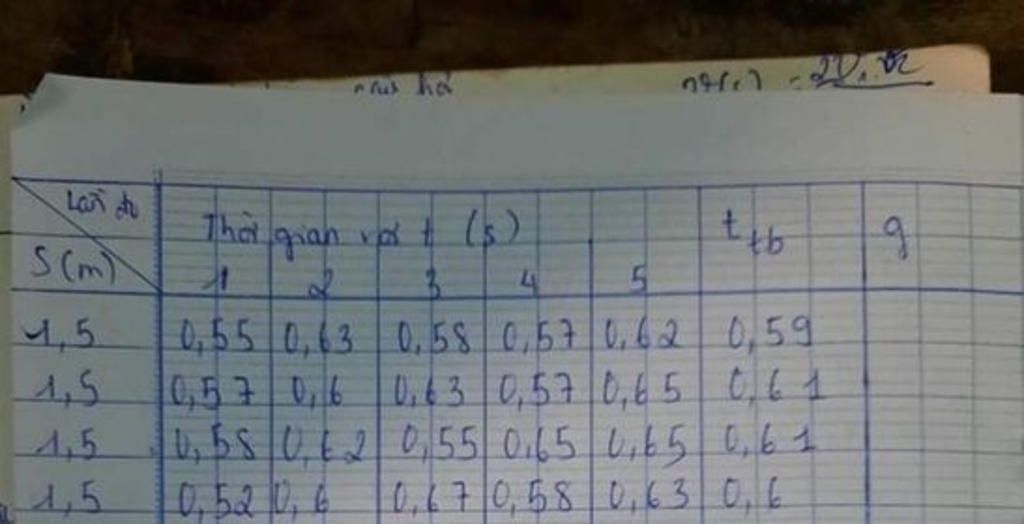 Lần đo
Thời gian rơi t (s)
t tb
g
S(m)
1 2 3 4 5
1,5 0,55 0,63 0,58 0,57 0,62 0,59
1,5 0,57 0,6 0,63 0,57 0,65 0,61
1,5 0,58 0,62 0,55 0,65 0,65 0,61
1,5 0,52 0,6 0,67 0,58 0,63 0,6